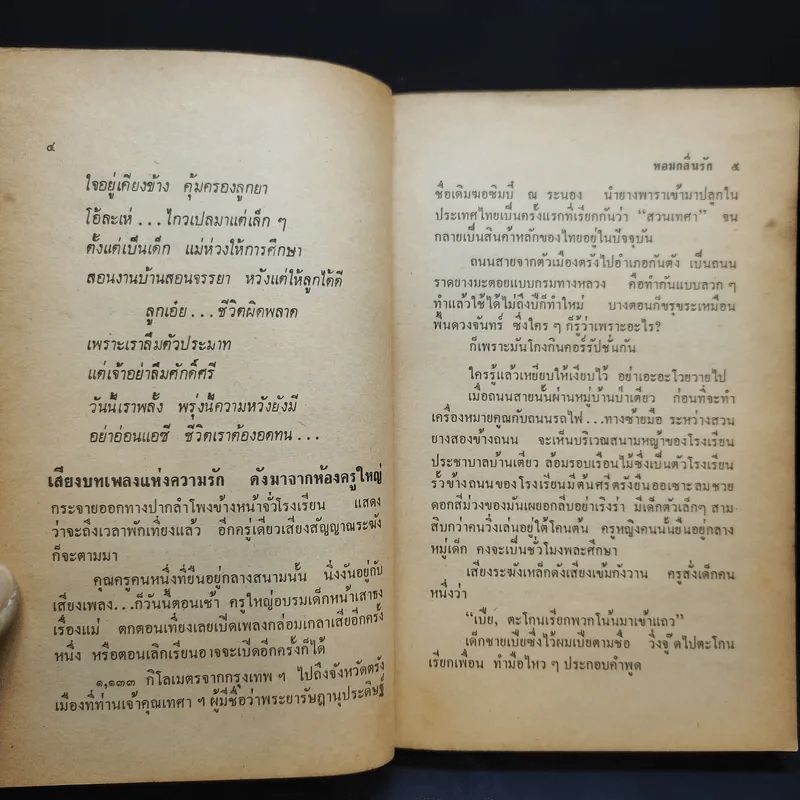 ๔
ใจอยู่เคียงข้าง คุ้มครองลูกยา
โอ้ละเห่ ...ไกวเปลมาแต่เล็ก ๆ
ตั้งแต่เป็นเด็ก แม่ห่วงให้การศึกษา
สอนงานบ้านสอนจรรยา หวังแต่ให้ลูกได้ดี
ลูกเอ๋ย ...ชีวิตผิดพลาด
เพราะเราลืมตัวประมาท
แต่เจ้าอย่าลืมศักดิ์ศรี
วันนี้เราพลั้ง พรุ่งนี้ความหวังยังมี
อย่าอ่อนแอซี ชีวิตเราต้องอดทน ...
เสียงบทเพลงแห่งความรัก ดังมาจากห้องครูใหญ่
กระจายออกทางปากลำโพงข้างหน้าจั่วโรงเรียน แสดง
ว่าจะถึงเวลาพักเที่ยงแล้ว อีกครู่เดียวเสียงสัญญาณระฆัง
ก็จะตามมา
คุณครูคนหนึ่งที่ยืนอยู่กลางสนามนั้น นิ่งงันอยู่กับ
เสียงเพลง...ก็วันนี้ตอนเช้า ครูใหญ่อบรมเด็กหน้าเสาธง
เรื่องแม่ ตกตอนเที่ยงเลยเปิดเพลงกล่อมเกลาเสียอีกครั้ง
หนึ่ง หรือตอนเลิกเรียนอาจจะเปิดอีกครั้งก็ได้
๑,๑๓๓ กิโลเมตรจากกรุงเทพ ฯ ไปถึงจังหวัดตรัง
เมืองที่ท่านเจ้าคุณเทศา ฯ ผู้มีชื่อว่าพระยารัษฎานุประดิษฐ์
หอมกลิ่นรัก ๕
ชื่อเดิมฆอซิมบี้ ณ ระนอง นำยางพาราเข้ามาปลูกใน
ประเทศไทยเป็นครั้งแรกที่เรียกกันว่า “สวนเทศา” จน
กลายเป็นสินค้าหลักของไทยอยู่ในปัจจุบัน
ถนนสายจากตัวเมืองตรังไปอำเภอกันตัง เป็นถนน
ราดยางมะตอยแบบกรมทางหลวง คือทำกันแบบลวก ๆ
ทำแล้วใช้ได้ไม่ถึงปีก็ทำใหม่ บางตอนก็ขรุขระเหมือน
พื้นดวงจันทร์ ซึ่งใคร ๆ ก็รู้ว่าเพราะอะไร?
ก็เพราะมันโกงกินคอร์รัปชั่นกัน
ใครรู้แล้วเหยียบให้เงียบไว้ อย่าเอะอะโวยวายไป
เมื่อถนนสายนั้นผ่านหมู่บ้านป่าเตียว ก่อนที่จะทำ
เครื่องหมายคูณกับถนนรถไฟ...ทางซ้ายมือ ระหว่างสวน
ยางสองข้างถนน จะเห็นบริเวณสนามหญ้าของโรงเรียน
ประชาบาลบ้านเตียว ล้อมรอบเรือนไม้ซึ่งเป็นตัวโรงเรียน
รั้วข้างถนนของโรงเรียนมีต้นศรีตรังยืนออเซาะลมชวย
ดอกสีม่วงของมันเผยอกลีบอย่างเริงร่า มีเด็กตัวเล็กๆ สาม
สิบกว่าคนวิ่งเล่นอยู่ใต้โคนต้น ครูหญิงคนนั้นยืนอยู่กลาง
หมู่เด็ก คงจะเป็นชั่วโมงพละศึกษา
เสียงระฆังเหล็กดังเสียงเข้มกังวาน ครูสั่งเด็กคน
หนึ่งว่า
“เบี้ย, ตะโกนเรียกพวกโน้นมาเข้าแถว”
เด็กชายเบี้ยซึ่งไว้ผมเปียตามชื่อ วิ่งจู๊ดไปตะโกน
เรียกเพื่อน ทำมือไหว ๆ ประกอบคำพูด